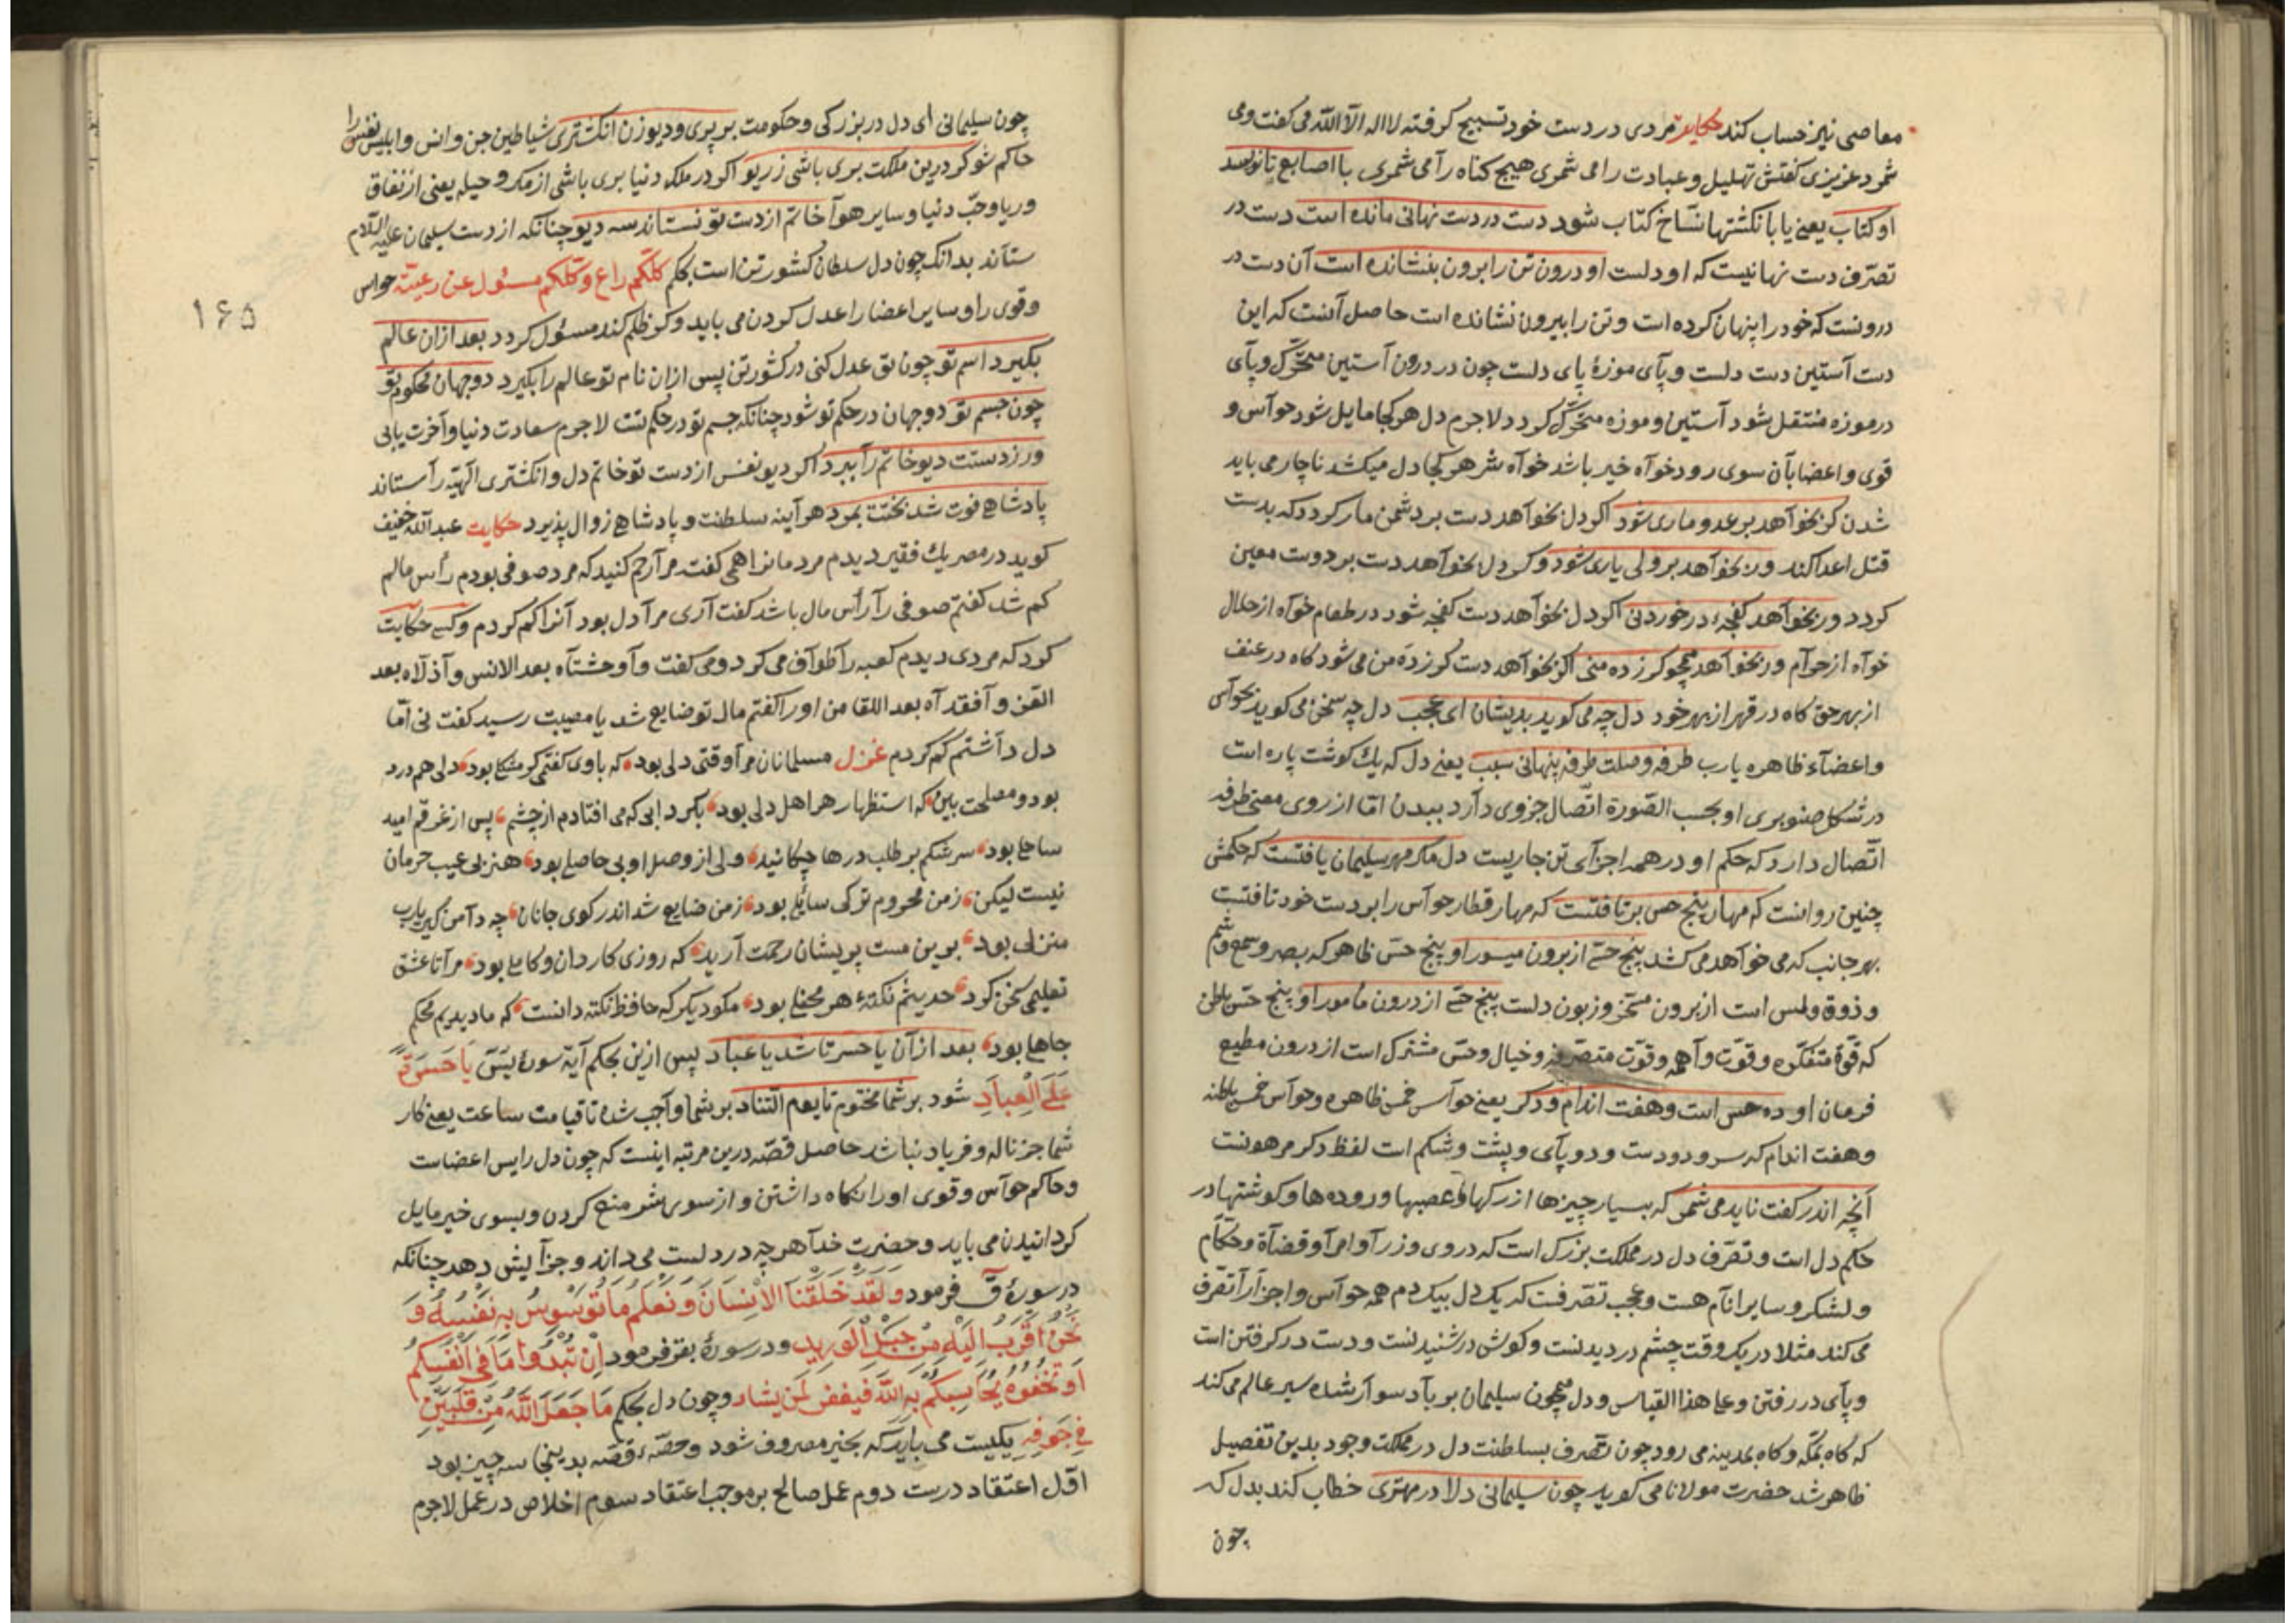 معاصی نیز حساب کند حکایت مردی در دست خود تسبیح کرفته لا اله الا الله می کفت و می
شمرد عزیزی کفتش تهلیل و عبادت را می شمری هیچ کناه را می شمری با اصابع تا نویسد
او کتاب یعنی یا با نکشتها نساخ کتاب شود دست در دست نهانی مانده است دست در
تصرف دست نهانیست که او دلست او درون تن را برون بنشانده است آن دست در
درونست که خود را پنهان کرده است و تن را بیرون نشانده است حاصل آنست که این
دست آستین دست دلست و پآی موزهٔ پای دلست چون در درون آستین متحرک و پآی
در موزه منتقل شود آستین و موزه متحرک کردد لاجرم دل هر کجا مایل شود حوآس و
قوی و اعضا بآن سوی رود خوآه خیر باشد خوآه شر هر کجا دل میکشد ناچار می باید
شدن کر بخوآهد بر عدو ماری شود اکر دل بخوآهد دست بر دشمن مار کردد که بدست
قتل اعدا کند ور بخوآهد بر ولی یاری شود و کر دل بخوآهد دست بر دوست معین
کردد ور بخوآهد کفچهٔ در خوردنی اکر دل بخوآهد دست کفچه شود در طعام خوآه از حلال
خوآه از حرآم ور بخوآهد همچو کرز ده منی اکر بخوآهد دست کرز ده من می شود کاه در عنف
از بهر حق کاه در قهر از بهر خود دل چه می کوید بدیشان ای عجب دل چه سخن می کوید بحوآس
و اعضآء ظاهره یارب طرفه وصلت طرفه پنهانی سبب یعنی دل که یك کوشت پاره است
در شکل صنوبری او بحسب الصورة اتصال جزوی دآرد ببدن اما از روی معنی طرفه
اتصال دارد که حکم او در همه اجزآی تن جاریست دل مکر مهر سلیمان یافتست که حکمش
چنین روانست که مهار پنج حس برتافتست که مهار قطار حوآس را بر دست خود تافتست
بهر جانب که می خوآهد می کشد پنج حسی از برون میسور او پنج حس ظاهر که بصر و سمع و شم
و ذوق و لمس است از برون مسخر و زبون دلست پنج حسی از درون مامور او پنج حس باطن
که قوهٔ متفکره و قوت وآهمه و قوت متصرفه و خیال و حس مشترك است از درون مطیع
فرمان او ده حس است و هفت اندام و دکر یعنی حوآس خمس ظاهره و حوآس خمس باطنه
و هفت اندام که سر و دو دست و دو پآی و پشت و شکم است لفظ دکر مرهونست
آنچه اندر کفت ناید می شمر که بسیار چیزها از رکها و عصبها و روده ها و کوشتها در
حکم دل است و تصرف دل در مملکت بزرك است که در وی وزرآ و امرآ و قضآة و حکآم
و لشکر و سایر انآم هست و عجب تصرفست که یك دل بیکدم همه حوآس و اجزآ را تصرف
می کند مثلا در یک وقت چشم در دیدنست و کوش در شنیدنست و دست در کرفتن است
و پآی در رفتن و علی هذا القیاس و دل همچون سلیمان بر باد سوآر شده سیر عالم می کند
که کاه بمکه و کاه بمدینه می رود چون تصرف بسلطنت دل در مملکت وجود بدین تفصیل
ظاهر شد حضرت مولانا می کوید چون سلیمانی دلا در مهتری خطاب کند بدل که
چون
چون سلیمانی ای دل در بزرکی و حکومت بر پری و دیو زن انکشتری شیاطین جن و انس و ابلیس نفس را
حاکم شو کر درین ملکت بری باشی ز ریو اکر در ملك دنیا بری باشی از مکر و حیله یعنی از نفاق
و ریا و حب دنیا و سایر هوآ خاتم از دست تو نستاند سه دیو چنانکه از دست سلیمان علیه السلام
ستاند بدانکه چون دل سلطان کشور تن است بحکم کلکم راع و کلکم مسئول عن رعیته حواس
و قوی را و سایر اعضا را عدل کردن می باید و کر ظلم کند مسئول کردد بعد ازان عالم
بکیرد اسم تو چون تو عدل کنی در کشور تن پس ازان نام تو عالم را بکیرد دو جهان محکوم تو
چون جسم تو دو جهان در حکم تو شود چنانکه جسم تو در حکم تست لاجرم سعادت دنیا و آخرت یابی
ور ز دستت دیو خاتم را ببرد اکر دیو نفس از دست تو خاتم دل و انکشتری الهیه را ستاند
پادشاهی فوت شد بختت بمرد هر آینه سلطنت و پادشاهی زوال پذیرد حکایت عبد الله خفیف
کوید در مصر یك فقیر دیدم مردمانرا همی کفت مرآ رحم کنید که مرد صوفی بودم رأس مالم
کم شد کفتم صوفی رآ رأس مال باشد کفت آری مرآ دل بود آنرا کم کردم و کسی حکایت
کرد که مردی دیدم کعبه را طوآف می کرد و می کفت وآ وحشتآه بعد الانس و آ ذلاه بعد
العز و آ فقد آه بعد اللقا من او را کفتم مال تو ضایع شد یا مصیبت رسید کفت نی اما
دل دآشتم کم کردم غزل مسلمانان مرآ وقتی دلی بود که با وی کفتمی کر مشکلی بود دلی همدرد
بود و مصلحت بین که استظهار هر اهل دلی بود بکردابی که می افتادم از چشم پس از غرقم امید
ساحلی بود سرشکم بر طلب درها چکانید ولی از وصل او بی حاصلی بود هنر بی عیب حرمان
نیست لیکن ز من محروم تر کی سائلی بود ز من ضایع شد اندر کوی جانان چه دآمن کیر یارب
منزلی بود برین مست پریشان رحمت آرید که روزی کاردان و کاملی بود مرآ تا عشق
تعلیم سخن کرد حدیثم نکتهٔ هر محفلی بود مکو دیکر که حافظ نکته دانست که ما دیدیم محکم
جاهلی بود بعد ازآن یا حسرتا شد یا عباد پس ازین بحکم آیة سورهٔ یس یَا حَسْرَةً
عَلَی الْعِبَادِ شود بر شما مختوم تا یوم التناد بر شما وآجب شده تا قیامت ساعت یعنی کار
شما جز ناله و فریاد نباشد حاصل قصه درین مرتبه اینست که چون دل رایس اعضاست
و حاکم حوآس و قوی او را نکاه داشتن و از سوی شر منع کردن و بسوی خیر مایل
کردانیدن می باید و حضرت خدآ هر چه در دلست می داند و جزآیش دهد چنانکه
در سورهٔ ق فرمود وَ لَقَدْ خَلَقْنَا الْاِنْسَانَ وَ نَعْلَمُ مَا تُوَسْوِسُ بِهِ نَفْسُهُ وَ
نَحْنُ اَقْرَبُ اِلَیْهِ مِنْ حَبْلِ الْوَرِیدِ و در سورهٔ بقره فرمود اِنْ تُبْدُوا مَا فِی اَنْفُسِکُمْ
اَوْ تُخْفُوهُ یُحَاسِبْکُمْ بِهِ اللهُ فیغفر لمن یشاء و چون دل بحکم مَا جَعَلَ اللهُ مِنْ قَلْبَیْنِ
فِی جَوْفِهِ یکیست می باید که بخیر مصروف شود و حصهٔ قصه بدینجا سه چیز بود
اول اعتقاد درست دوم عمل صالح بر موجب اعتقاد سوم اخلاص در عمل لاجرم
۱۶۵